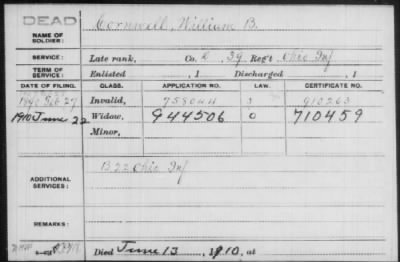 DEAD
NAME OF SOLDIER: Cornwell, William B.
SERVICE: Late rank, Co. 39 Reg't Ohio Inf
TERM OF SERVICE: Enlisted , 1 Discharged , 1
DATE OF FILING. CLASS. APPLICATION NO. LAW. CERTIFICATE NO.
1890 Feb 27 Invalid, 758044 910263
1910 June 22 Widow, 944506 O 710459
Minor,
ADDITIONAL SERVICES: B 22 Ohio Inf
REMARKS:
Died June 13, 1910, at